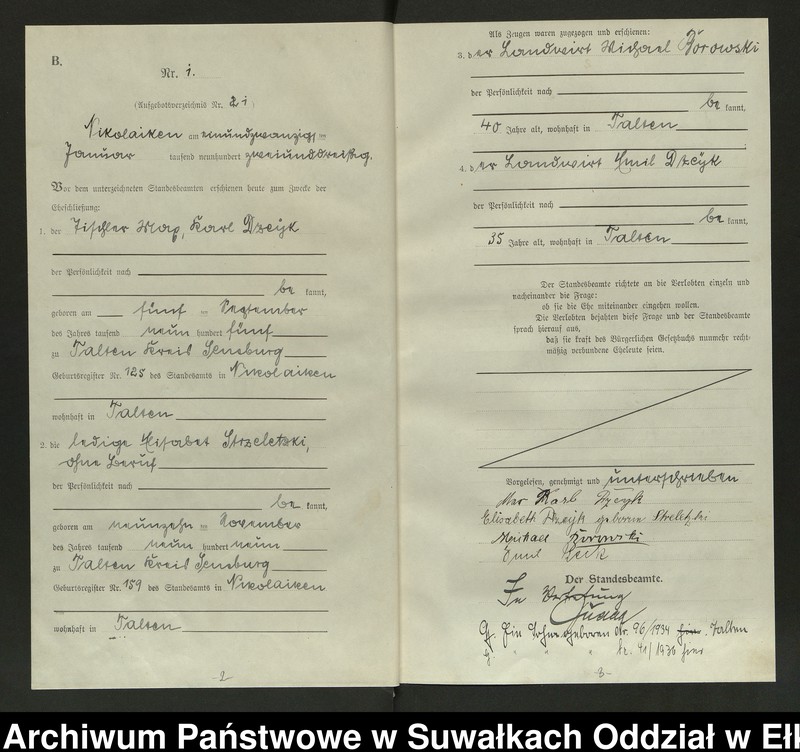 B.
Nr. 1.
(Aufgebotsverzeichnis Nr. 21)
Nikolaiken am einundzwanzigsten
Januar tausend neunhundert zweiunddreißig.
Vor dem unterzeichneten Standesbeamten erschienen heute zum Zwecke der
Eheschließung:
1. der Tischler Max, Karl Dzcyk
der Persönlichkeit nach
be kannt,
geboren am fünf ten September
des Jahres tausend neun hundert fünf
zu Talten Kreis Sensburg
Geburtsregister Nr. 125 des Standesamts in Nikolaiken
wohnhaft in Talten
2. die ledige Elisabet Strzeletzki,
ohne Beruf
der Persönlichkeit nach
be kannt,
geboren am neunzehn ten November
des Jahres tausend neun hundert neun
zu Talten Kreis Sensburg
Geburtsregister Nr. 159 des Standesamts in Nikolaiken
wohnhaft in Talten
- 2 -
Als Zeugen waren zugezogen und erschienen:
3. der Landwirt Michael
der Persönlichkeit nach
be kannt,
40 Jahre alt, wohnhaft in Talten
4. der Landwirt Emil Dzcyk
der Persönlichkeit nach
be kannt,
35 Jahre alt, wohnhaft in Talten
Der Standesbeamte richtete an die Verlobten einzeln und
nacheinander die Frage:
ob sie die Ehe miteinander eingehen wollen.
Die Verlobten bejahten diese Frage und der Standesbeamte
sprach hierauf aus,
daß sie kraft des Bürgerlichen Gesetzbuchs nunmehr recht-
mäßig verbundene Eheleute seien.
Vorgelesen, genehmigt und unterschrieben
Max Karl Dzcyk
Elisabeth Dzcyk geborene Streletzki
Michael
Emil
Der Standesbeamte.
In Vertretung
Ein Sohn geboren Nr. 96/1934 Talten
" " " Nr. 41/1936 hier
- 3 -
Archiwum Państwowe w Suwałkach Oddział w Eł